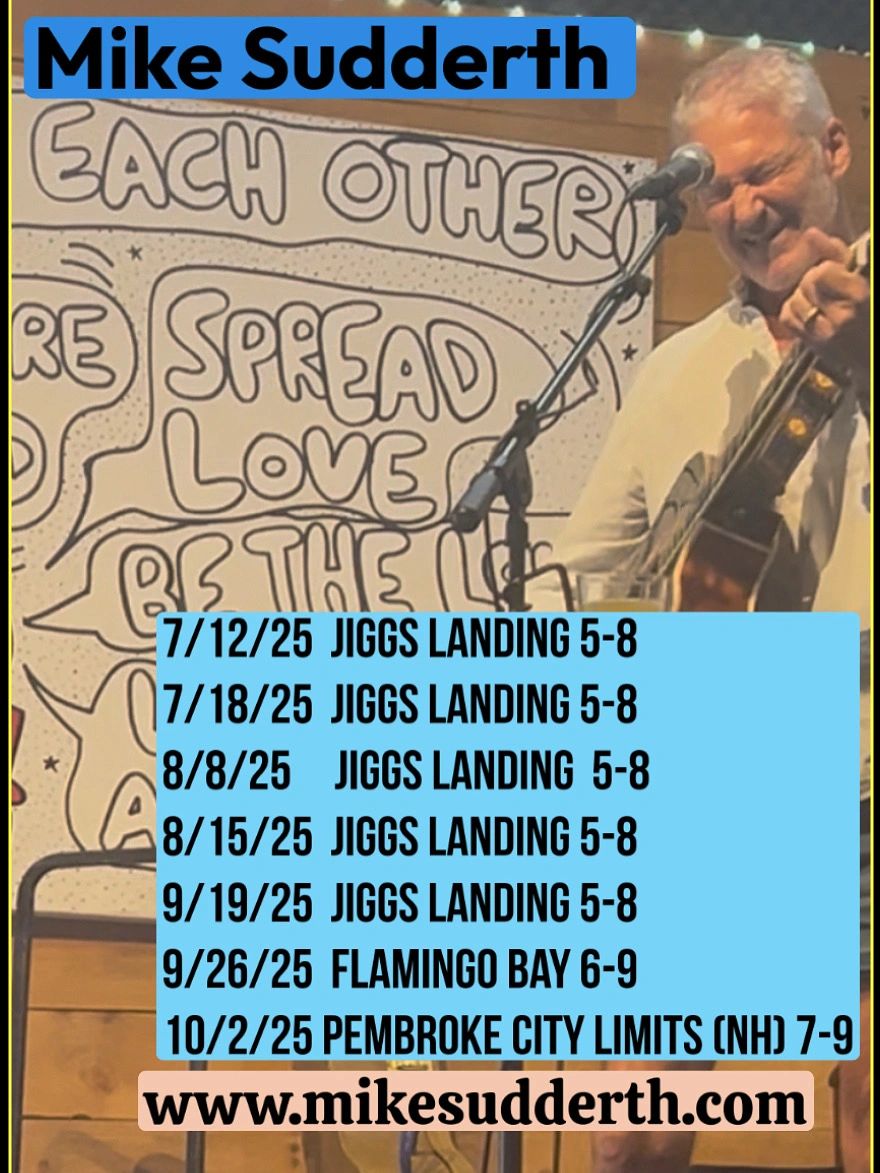 Mike Sudderth
EACH OTHER
RE
SPREAD
LOVE
BE THE
7/12/25 JIGGS LANDING 5-8
7/18/25 JIGGS LANDING 5-8
8/8/25 JIGGS LANDING 5-8
8/15/25 JIGGS LANDING 5-8
9/19/25 JIGGS LANDING 5-8
9/26/25 FLAMINGO BAY 6-9
10/2/25 PEMBROKE CITY LIMITS (NH) 7-9
www.mikesudderth.com